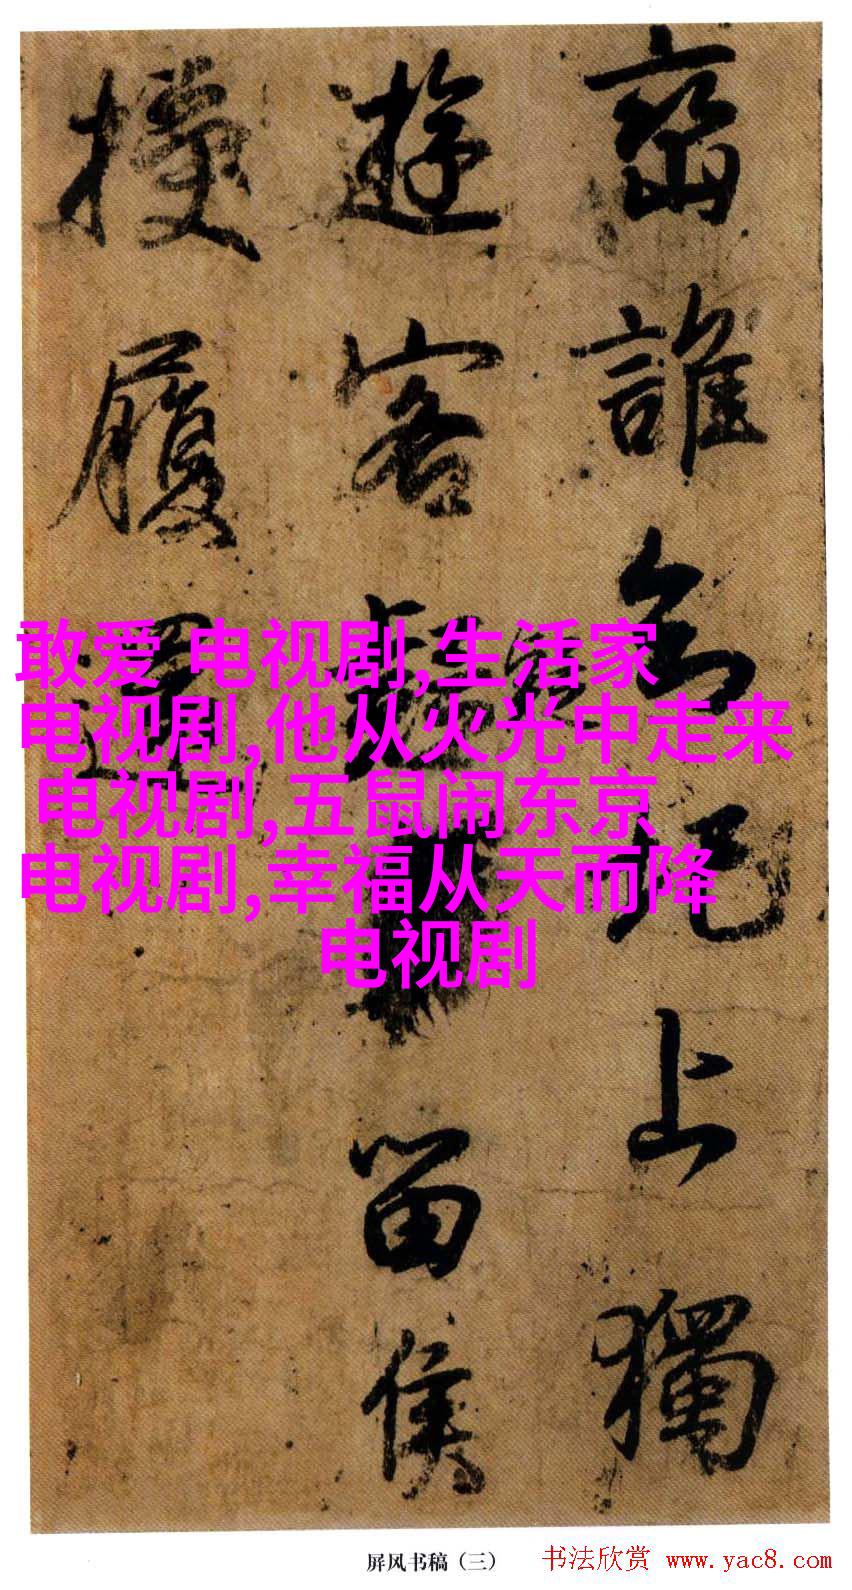 誰念圯上獨
遊客留侯
履還
敢爱 电视剧,生活家
电视剧,他从火光中走来
电视剧,五鼠闹东京
电视剧,幸福从天而降
电视剧
屏风书稿（三）
书法欣赏 www.yac8.com